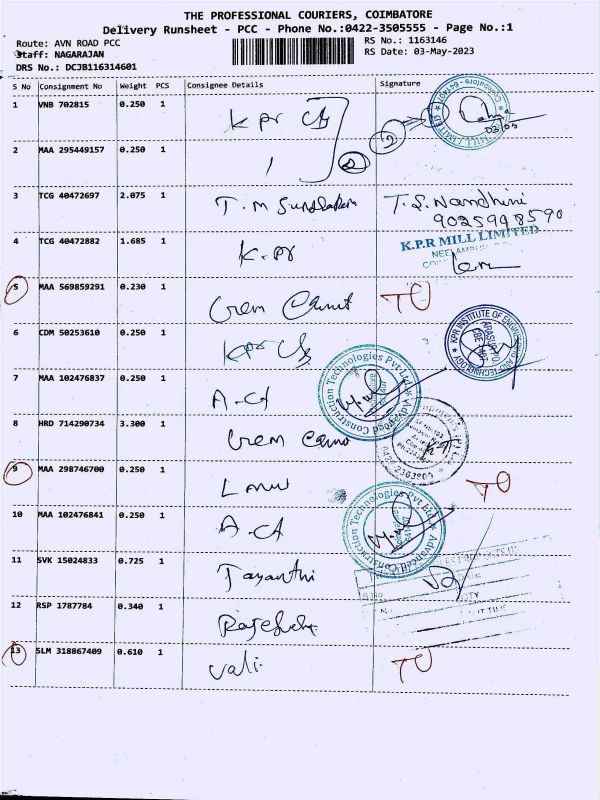 THE PROFESSIONAL COURIERS, COIMBATORE
Delivery Runsheet - PCC - Phone No.:0422-3505555 - Page No.:1
Route: AVN ROAD PCC
Staff: NAGARAJAN
DRS No.: DCJB116314601
RS No.: 1163146
RS Date: 03-May-2023
S No Consignment No Weight PCS Consignee Details Signature
1 VNB 702815 0.250 1 KPR
2 MAA 295449157 0.250 1
3 TCG 40472697 2.075 1 T.M Sundaram T.S. Nandhini
9025998590
4 TCG 40472882 1.685 1 K.PR K.P.R MILL LIMITED
5 MAA 569859291 0.230 1 TO
6 CDM 50253610 0.250 1 KPR KPR INSTITUTE OF ENGINEERING AND TECHNOLOGY
7 MAA 102476837 0.250 1 A-CT Advanced Construction Technologies Pvt Ltd
8 HRD 714290734 3.300 1
9 MAA 298746700 0.250 1 TO
10 MAA 102476841 0.250 1 A-CT Advanced Construction Technologies Pvt Ltd
11 SVK 15024833 0.725 1 Jayanthi
12 RSP 1787784 0.340 1
13 SLM 318867409 0.610 1 Vali TO